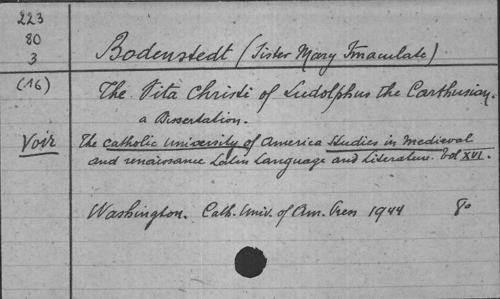 223
80
3
Bodenstedt (Sister Mary Immaculate)
(16)
The Vita Christi of Ludolphus the Carthusian.
a Dissertation.
Voir
The Catholic University of America Studies in Medieval
and renaissance Latin Language and Literature. Vol XVI.
Washington. Cath. Univ. of Am. Press 1944 8°